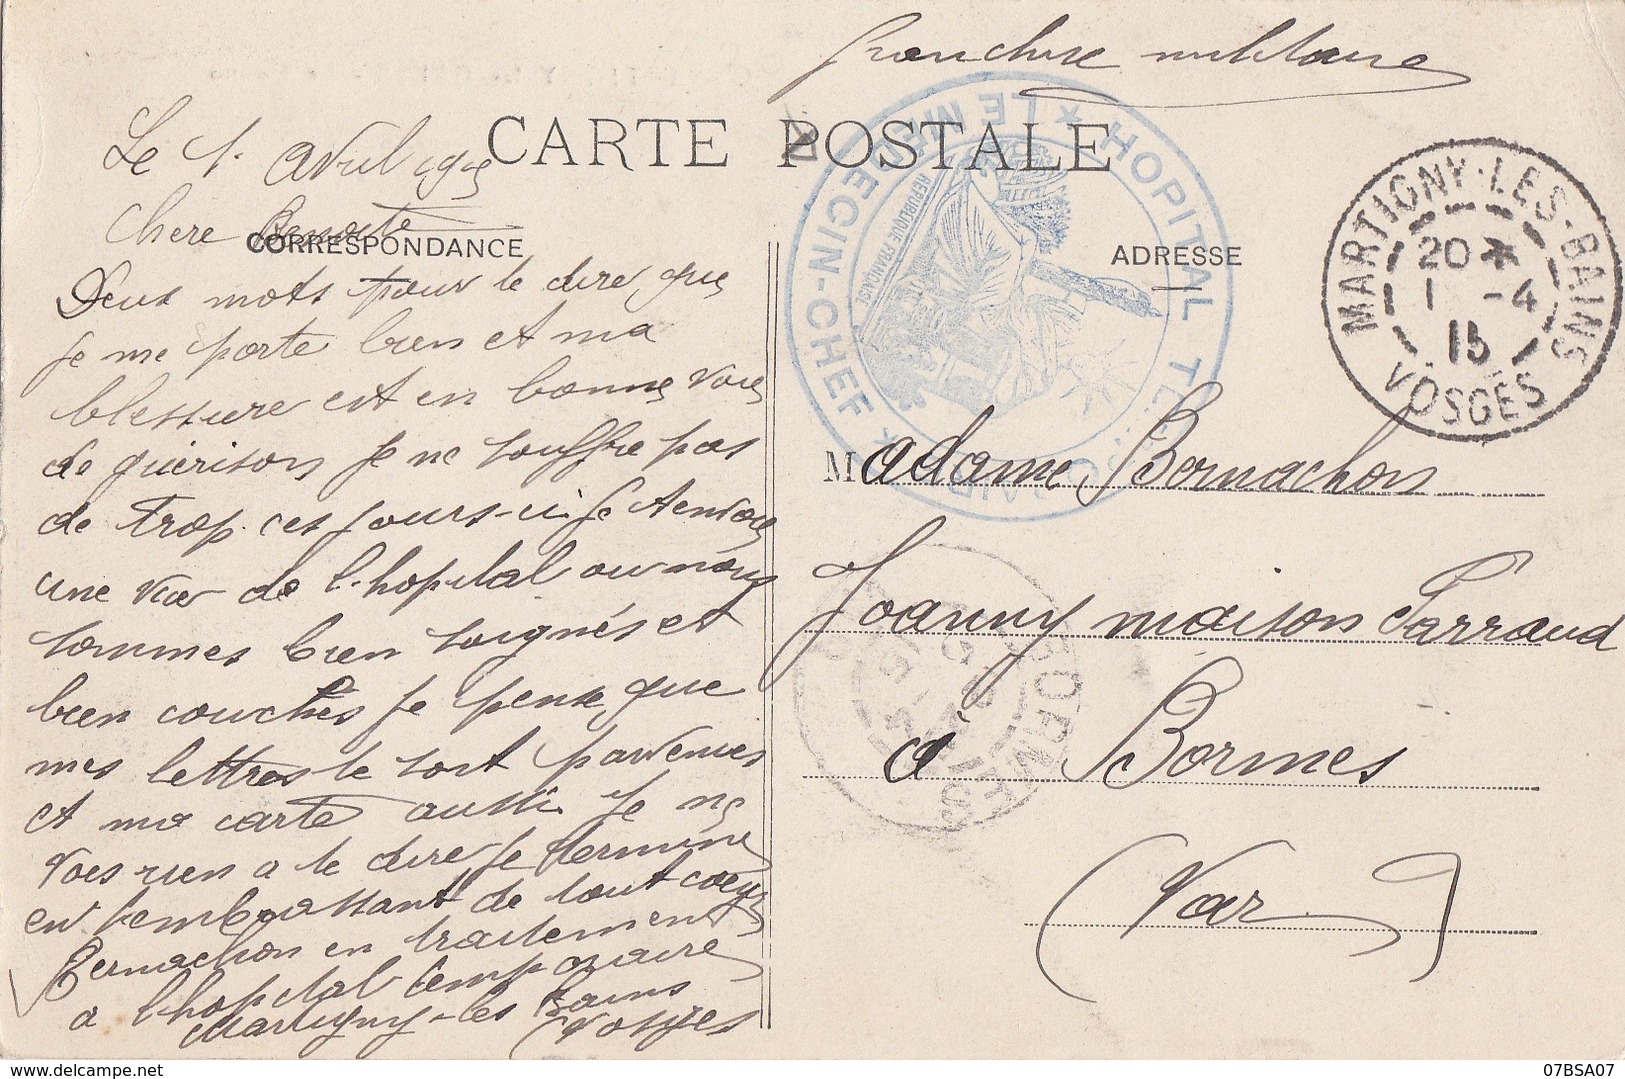 franchise militaire
CARTE POSTALE
Le 1. avril 1915
Chere Benoite
CORRESPONDANCE
Deux mots pour te dire que
je me porte bien et ma
blessure est en bonne voie
de guérison je ne souffre pas
de trop ces jours-ci. je t'envoie
une vue de l'hopital ou nous
sommes bien soignés et
bien couchés je pense que
mes lettres te sont parvenues
et ma carte aussi je ne
vois rien a te dire je termine
en t'embrassant de tout coeur
Bernachon en traitement
a l'hopital temporaire
Martigny-les Bains
(Vosges
ADRESSE
Madame Bernachon
Joanny maison Farraud
à Bormes
(Var)
HOPITAL
LE MEDECIN-CHEF
REPUBLIQUE FRANÇAISE
MARTIGNY-LES-BAINS
20 *
1 -4
15
VOSGES
BORMES
07BSA07